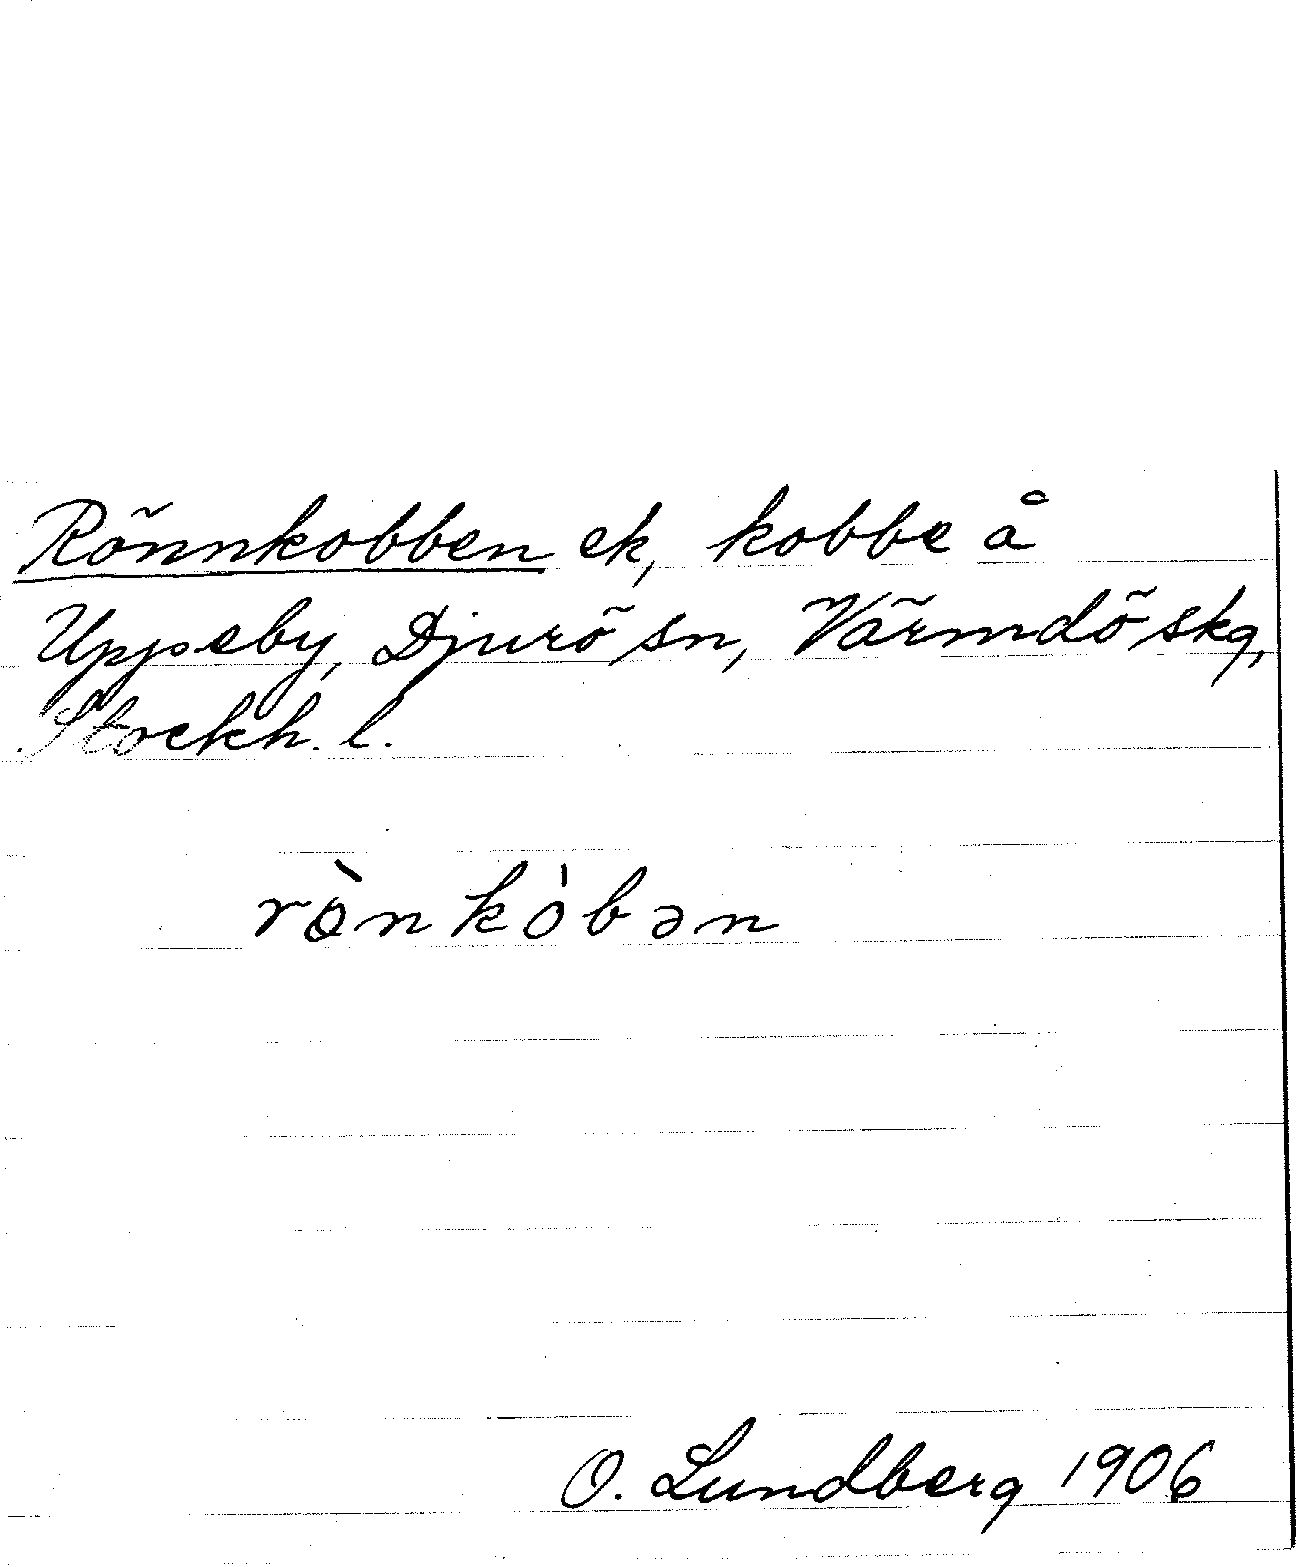 Rönnkobben ek, kobbe å
Uppeby, Djurö sn, Värmdö skg,
Stockh. l.
rònkȯbən
O. Lundberg 1906